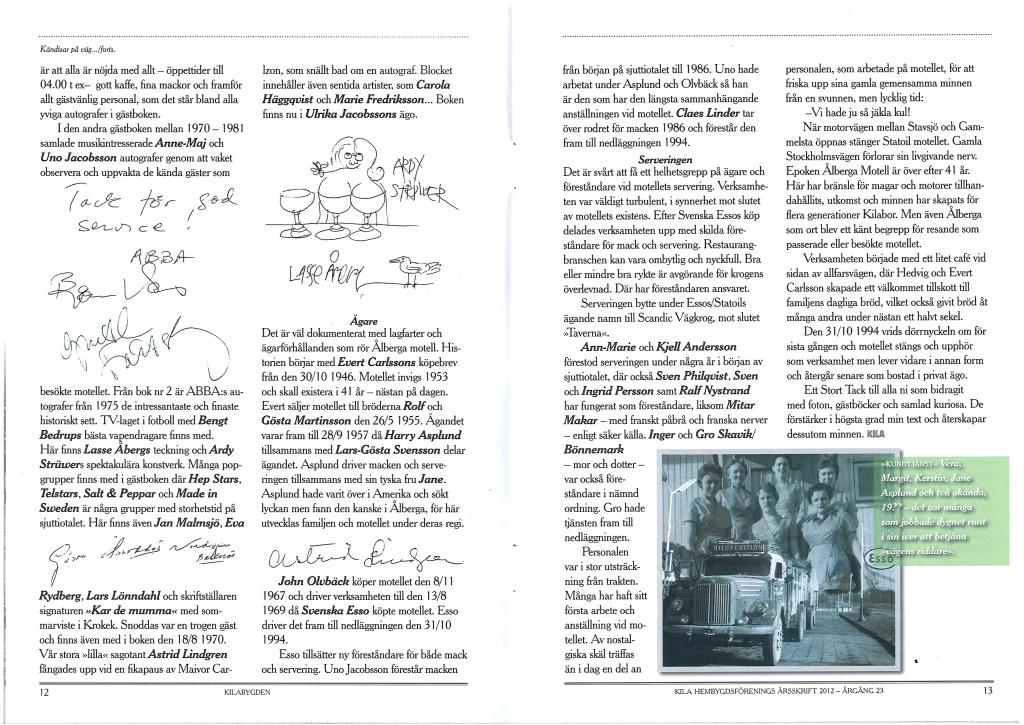 Kändisar på väg.../forts.
är att alla är nöjda med allt – öppettider till
04.00 t ex– gott kaffe, fina mackor och framför
allt gästvänlig personal, som det står bland alla
yviga autografer i gästboken.
I den andra gästboken mellan 1970 – 1981
samlade musikintresserade Anne-Maj och
Uno Jacobsson autografer genom att vaket
observera och uppvakta de kända gäster som
Tack för god
service!
ABBA
besökte motellet. Från bok nr 2 är ABBA:s au-
tografer från 1975 de intressantaste och finaste
historiskt sett. TV-laget i fotboll med Bengt
Bedrups bästa vapendragare finns med.
Här finns Lasse Åbergs teckning och Ardy
Strüwers spektakulära konstverk. Många pop-
grupper finns med i gästboken där Hep Stars,
Telstars, Salt & Peppar och Made in
Sweden är några grupper med storhetstid på
sjuttiotalet. Här finns även Jan Malmsjö, Eva
Rydberg, Lars Lönndahl och skriftställaren
signaturen »Kar de mumma« med som-
marviste i Krokek. Snoddas var en trogen gäst
och finns även med i boken den 18/8 1970.
Vår stora »lilla« sagotant Astrid Lindgren
fångades upp vid en fikapaus av Maivor Car-
lzon, som snällt bad om en autograf. Blocket
innehåller även sentida artister, som Carola
Häggqvist och Marie Fredriksson... Boken
finns nu i Ulrika Jacobssons ägo.
ARDY
STRÜWER
LASSE ÅBERG
Ägare
Det är väl dokumenterat med lagfarter och
ägarförhållanden som rör Ålberga motell. His-
torien börjar med Evert Carlssons köpebrev
från den 30/10 1946. Motellet invigs 1953
och skall existera i 41 år – nästan på dagen.
Evert säljer motellet till bröderna Rolf och
Gösta Martinsson den 26/5 1955. Ägandet
varar fram till 28/9 1957 då Harry Asplund
tillsammans med Lars-Gösta Svensson delar
ägandet. Asplund driver macken och serve-
ringen tillsammans med sin tyska fru Jane.
Asplund hade varit över i Amerika och sökt
lyckan men fann den kanske i Ålberga, för här
utvecklas familjen och motellet under deras regi.
Astrid Lindgren
John Olvbäck köper motellet den 8/11
1967 och driver verksamheten till den 13/8
1969 då Svenska Esso köpte motellet. Esso
driver det fram till nedläggningen den 31/10
1994.
Esso tillsätter ny föreståndare för både mack
och servering. Uno Jacobsson förestår macken
12
KILABYGDEN
från början på sjuttiotalet till 1986. Uno hade
arbetat under Asplund och Olvbäck så han
är den som har den längsta sammanhängande
anställningen vid motellet. Claes Linder tar
över rodret för macken 1986 och förestår den
fram till nedläggningen 1994.
Serveringen
Det är svårt att få ett helhetsgrepp på ägare och
föreståndare vid motellets servering. Verksamhe-
ten var väldigt turbulent, i synnerhet mot slutet
av motellets existens. Efter Svenska Essos köp
delades verksamheten upp med skilda före-
ståndare för mack och servering. Restaurang-
branschen kan vara ombytlig och nyckfull. Bra
eller mindre bra rykte är avgörande för krogens
överlevnad. Där har föreståndaren ansvaret.
Serveringen bytte under Essos/Statoils
ägande namn till Scandic Vägkrog, mot slutet
»Taverna«.
Ann-Marie och Kjell Andersson
förestod serveringen under några år i början av
sjuttiotalet, där också Sven Philqvist, Sven
och Ingrid Persson samt Ralf Nystrand
har fungerat som föreståndare, liksom Mitar
Makar – med franskt påbrå och franska nerver
– enligt säker källa. Inger och Gro Skavik/
Bönnemark
– mor och dotter –
var också före-
ståndare i nämnd
ordning. Gro hade
tjänsten fram till
nedläggningen.
Personalen
var i stor utsträck-
ning från trakten.
Många har haft sitt
första arbete och
anställning vid mo-
tellet. Av nostal-
giska skäl träffas
än i dag en del an
personalen, som arbetade på motellet, för att
friska upp sina gamla gemensamma minnen
från en svunnen, men lycklig tid:
–Vi hade ju så jäkla kul!
När motorvägen mellan Stavsjö och Gam-
melsta öppnas stänger Statoil motellet. Gamla
Stockholmsvägen förlorar sin livgivande nerv.
Epoken Ålberga Motell är över efter 41 år.
Här har bränsle för magar och motorer tillhan-
dahållits, utkomst och minnen har skapats för
flera generationer Kilabor. Men även Ålberga
som ort blev ett känt begrepp för resande som
passerade eller besökte motellet.
Verksamheten började med ett litet café vid
sidan av allfarsvägen, där Hedvig och Evert
Carlsson skapade ett välkommet tillskott till
familjens dagliga bröd, vilket också givit bröd åt
många andra under nästan ett halvt sekel.
Den 31/10 1994 vrids dörrnyckeln om för
sista gången och motellet stängs och upphör
som verksamhet men lever vidare i annan form
och återgår senare som bostad i privat ägo.
Ett Stort Tack till alla ni som bidragit
med foton, gästböcker och samlad kuriosa. De
förstärker i högsta grad min text och återskapar
dessutom minnen. KILA
»KUNDTJÄNST« Vera,
Margit, Kerstin, Jane
Asplund och två okända,
19?? – det var många
som jobbade dygnet runt
i sin iver att betjäna
»vägens riddare«.
Esso
BILSPEDITION
KILA HEMBYGDSFÖRENINGS ÅRSSKRIFT 2012 – ÅRGÅNG 23
13